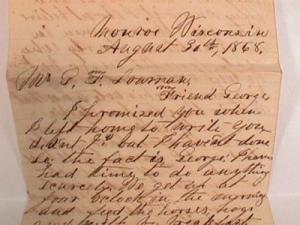 Monroe Wisconsin
August 30th, 1868,
Mr P. F. Lowman,
My Friend George
I promised you when
I left home to write you
didn't I? but I haven't done
so, the fact is George I have
had time to do anything
scarcely. We get up at
four o'clock in the morning
and feed the horses, hogs
breakfast